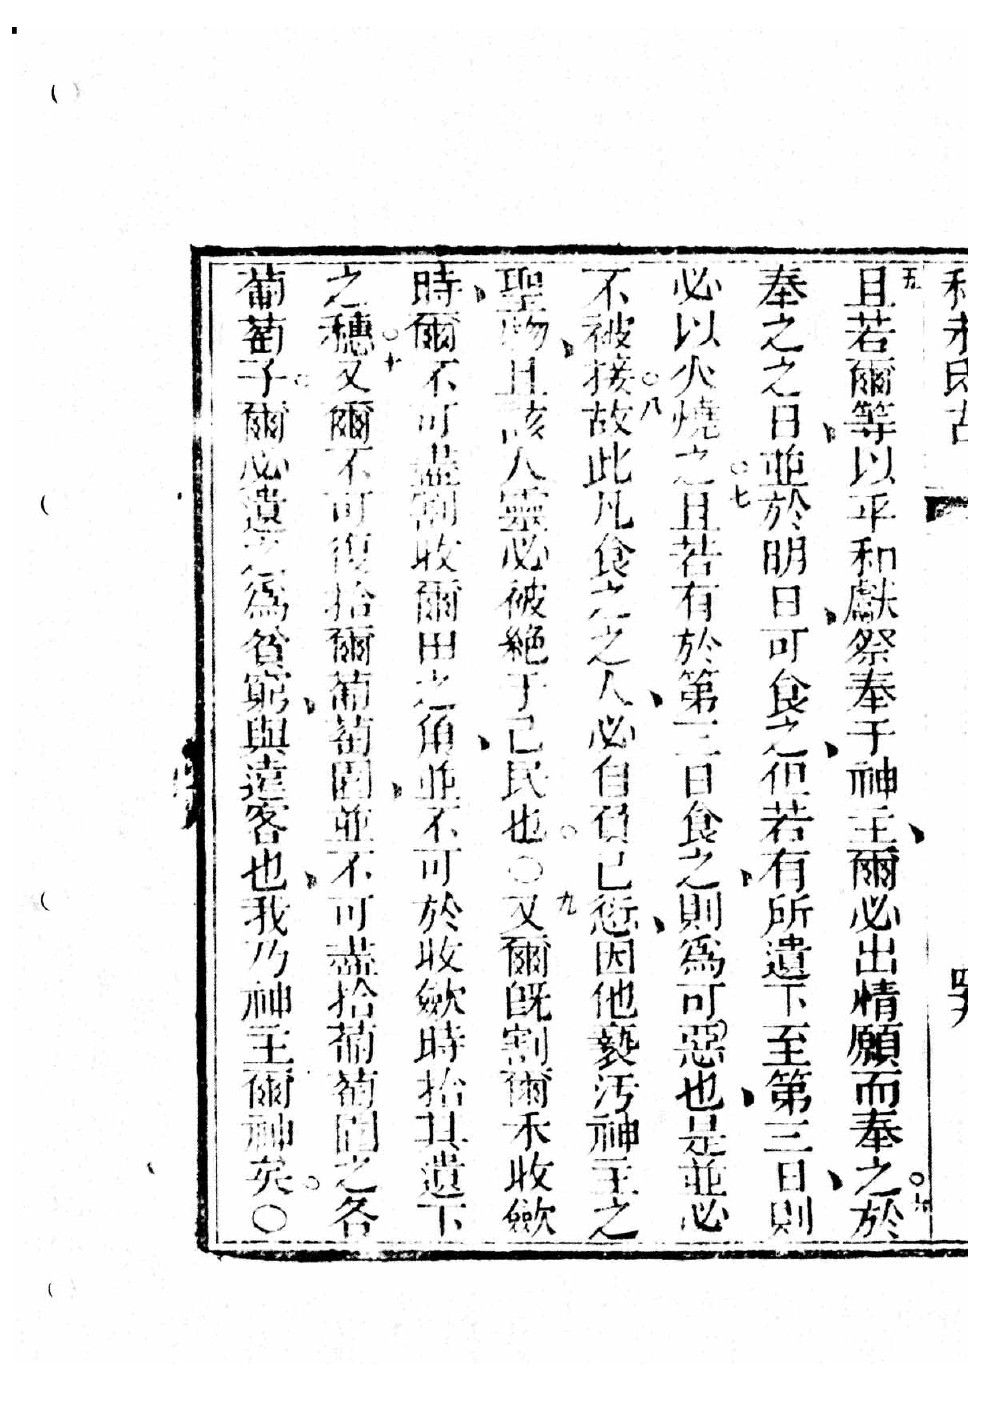 五且若爾等以平和獻祭奉于神主、爾必出情願而奉之。六於
奉之之日、並於明日、可食之、但若有所遺下至第三日、則
必以火燒之。七且若有於第三日食之、則為可惡也、是並必
不被接。八故此凡食之之人、必自負己愆、因他褻污神主之
聖物、且該人靈必被絕于己民也。○九又爾既割爾禾收歛
時、爾不可盡割收爾田之角、並不可於收歛時拾其遺下
之穗。十又爾不可復拾爾葡萄園、並不可盡拾葡萄園之各
葡萄子。爾必遺之為貧窮、與遠客也、我乃神主爾神矣。○